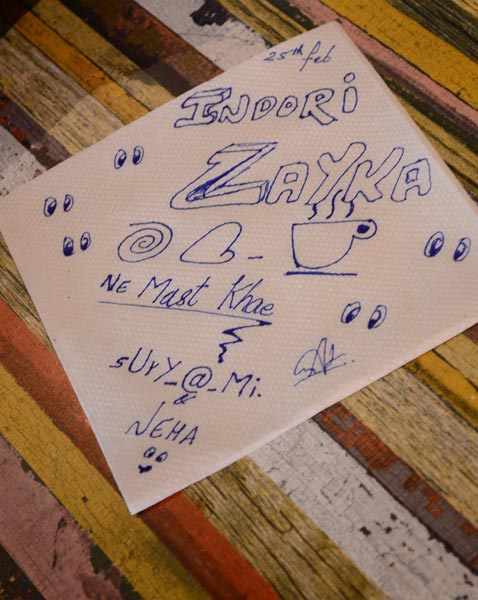 25th feb
INDORI
ZAYKA
NE Mast Khae
sUrY_@_Mi.
&
NEHA